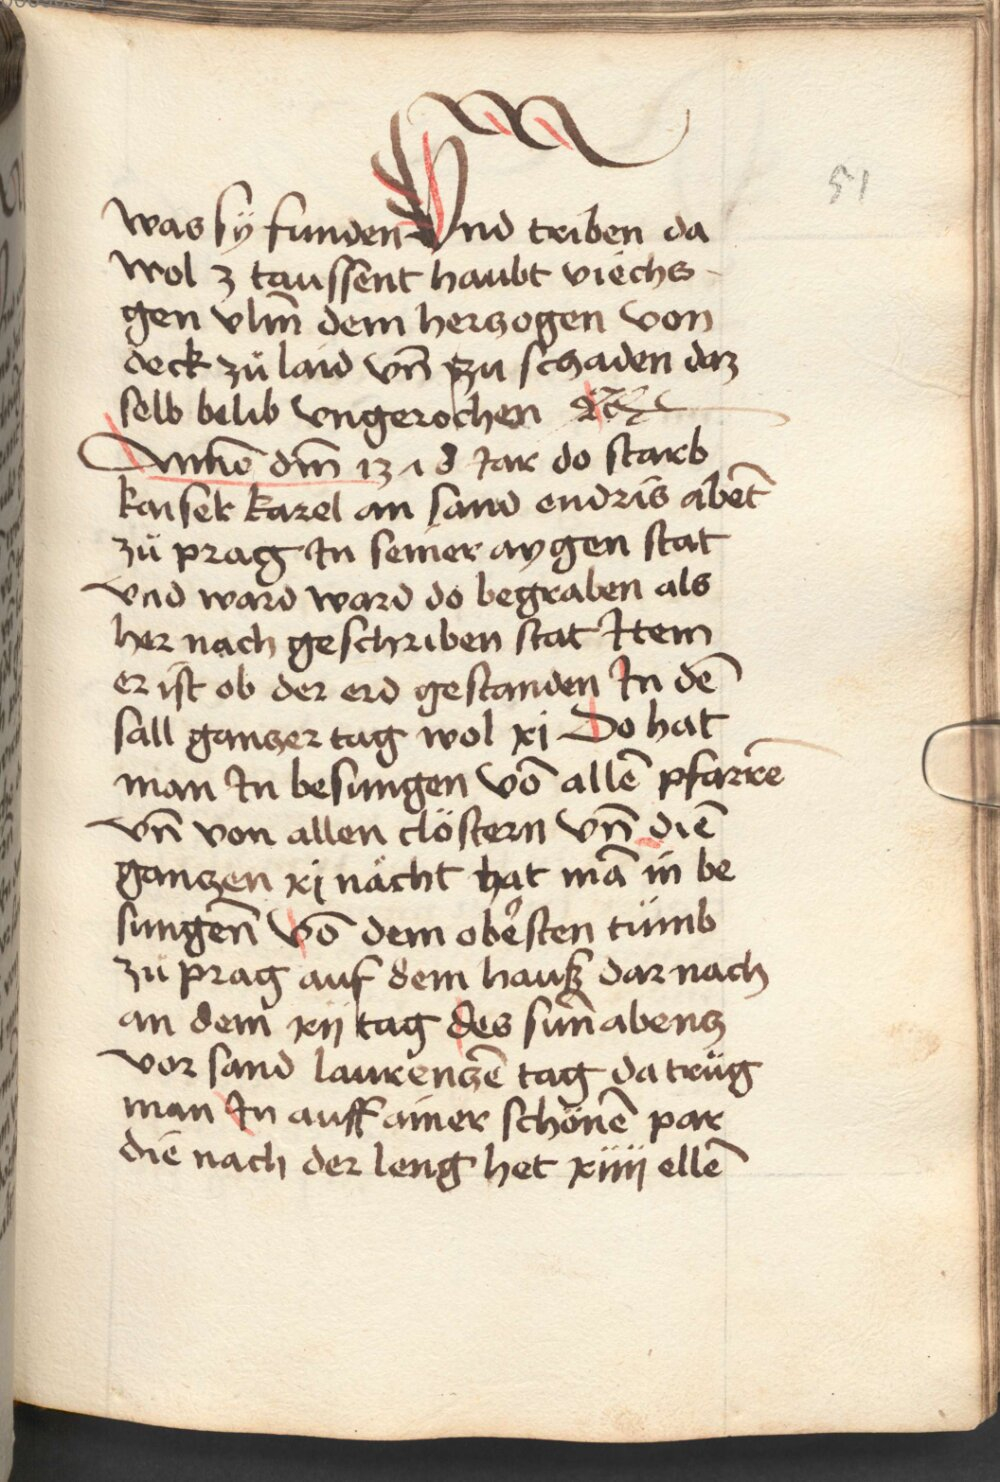 51
was sÿ funden Vnd triben da
wol 3 taussent haubt viechs
gen vlm̄ dem herczogen von
deck zů laid vn̄ zu schaden daz
selb belib vngerochen ꝛcͣ
Anno dm̄ 13 ʌ 8 Jar do starb
kaiser karel an sand endris abēt
zů prag In seiner aygen stat
vnd ward ward do begraben als
her nach geschriben stat Item
er ist ob der erd gestanden In dē
sall ganczer tag wol xj Do hat
man In besungen vō allē pfarrē
vn̄ von allen clöstern vn̄ diē
ganczen xj nächt hat mā in be
sungen̄ vō dem obersten tůmb
zů prag auf dem hauß dar nach
an dem xij tag des sun̄abencz
vor sand laurenczē tag da trůg
man In auff ainer schönē par
die nach der leng het xiiij ellē